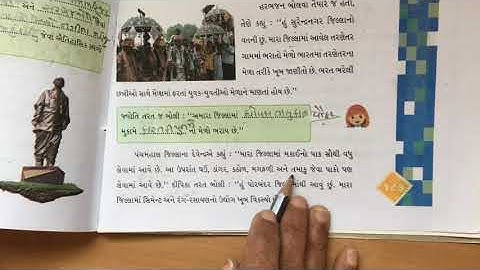 હરભજન બોલવા તૈયાર જ હતા,
તેણે કહ્યું : "હું સુરેન્દ્રનગર જિલ્લાનો
વતની છું. મારા જિલ્લામાં આવેલ તરણેતર
ગામમાં ભરાતો મેળો ભારતમાં તરણેતરના
મેળા તરીકે ખૂબ જાણીતો છે. ભરત ભરેલી
છત્રીઓ સાથે મેળામાં ફરતાં યુવક-યુવતીઓ મેળાને માણતાં હોય છે."
જ્યોતિ તરત જ બોલી : "અમારા જિલ્લામાં
મુકામે નો મેળો ભરાય છે."
પંચમહાલ જિલ્લાના દેવેન્દ્રએ કહ્યું : "મારા જિલ્લામાં મકાઈનો પાક સૌથી વધુ
લેવામાં આવે છે. આ ઉપરાંત ઘઉં, ડાંગર, કઠોળ, મગફળી અને તમાકુ જેવા પાકો પણ
લેવામાં આવે છે." દીપિકા તરત બોલી : "હું પોરબંદર જિલ્લામાંથી આવું છું. મારા
જિલ્લામાં સિમેન્ટ અને રંગ-રસાયણનો ઉદ્યોગ ખૂબ વિકસ્યો